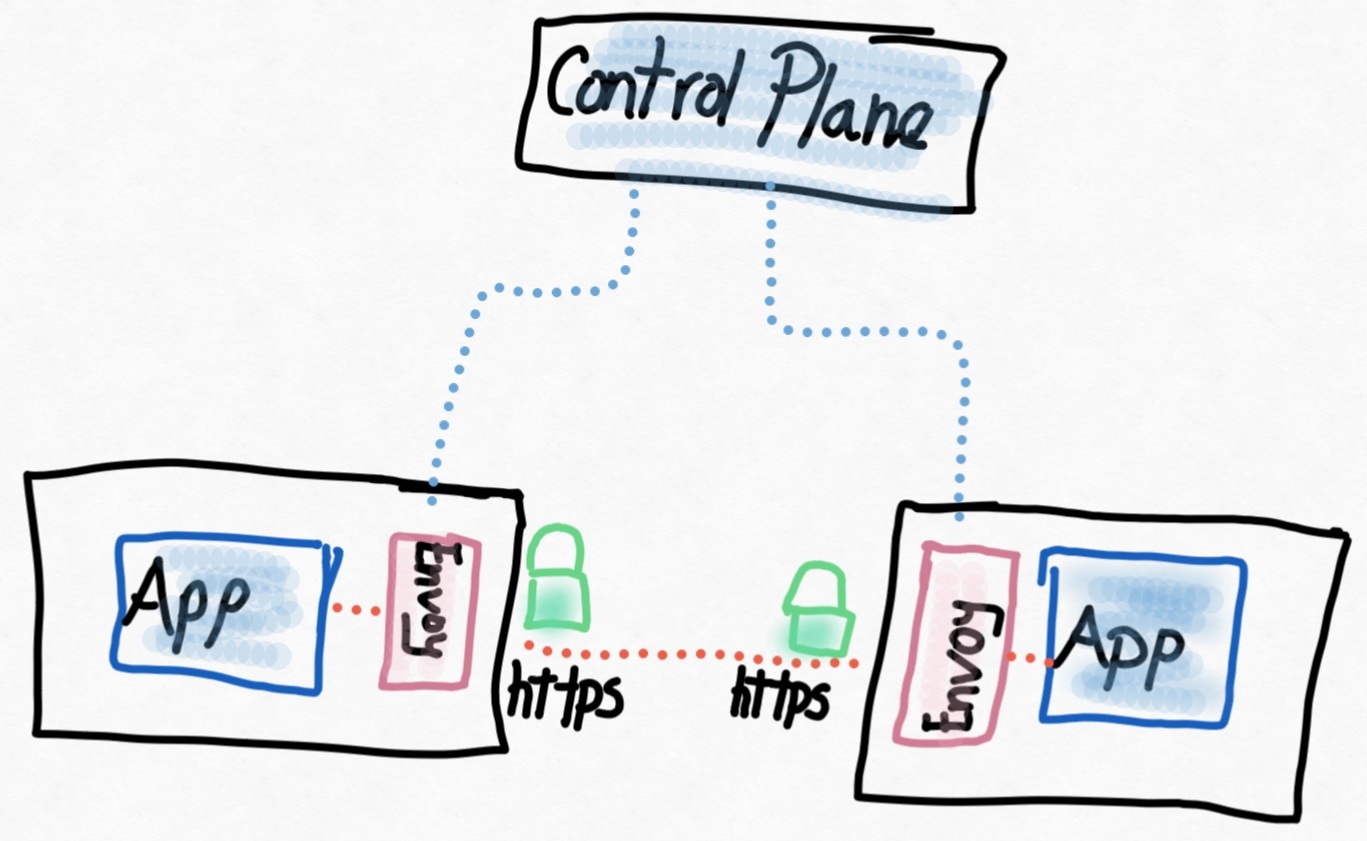 Control Plane
App
Envoy
https
https
Envoy
App